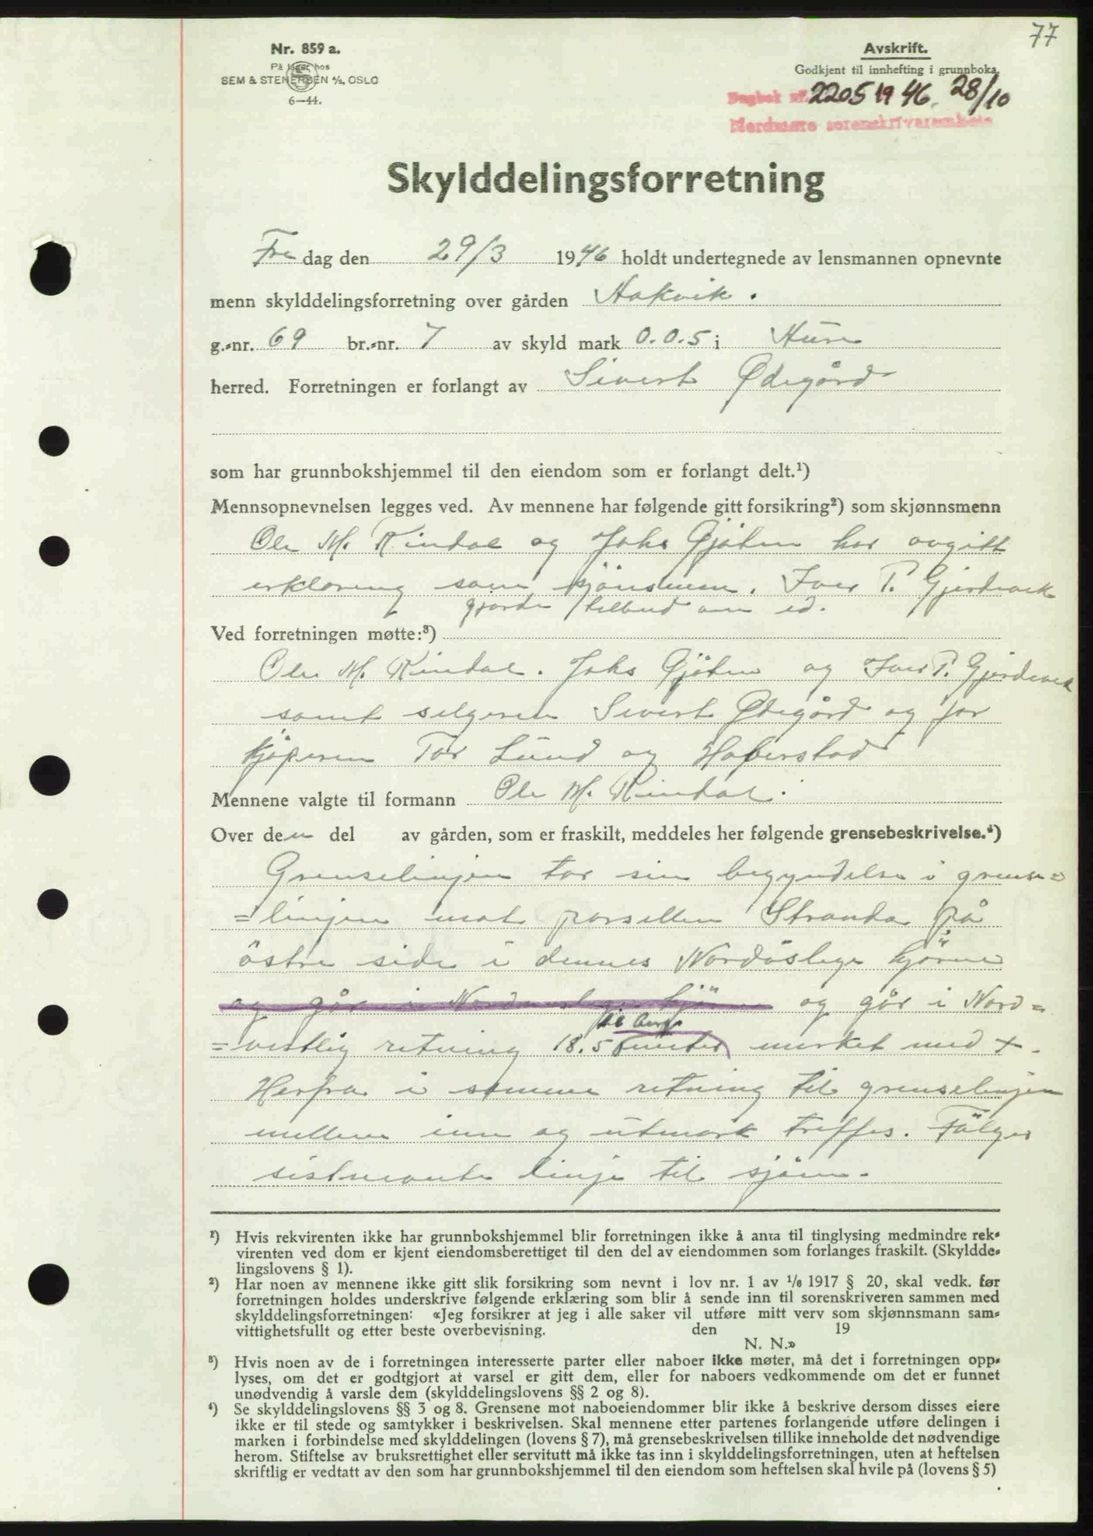 77
Nr. 859 a.
På lager hos
SEM & STENERSEN A/S, OSLO
6—44.
Avskrift.
Godkjent til innhefting i grunnboka.
Dagbok nr. 2205 1946. 28/10
Nordmøre sorenskriverembete
Skylddelingsforretning
Fre dag den 29/3 1946 holdt undertegnede av lensmannen opnevnte
menn skylddelingsforretning over gården Hakvik.
g.-nr. 69 br.-nr. 7 av skyld mark 0.0.5 i
herred. Forretningen er forlangt av Sivert Ødegård
som har grunnbokshjemmel til den eiendom som er forlangt delt.¹)
Mennsopnevnelsen legges ved. Av mennene har følgende gitt forsikring²) som skjønnsmenn
Ole M. Rindal og Johs Gjöten har avgitt
erklæring som skjönsmenn. Iver P. Gjerdevik
gjorde tilbud om ed.
Ved forretningen møtte:³)
Ole M. Rindal. Johs Gjöten og Iver P. Gjerdevik
samt selgeren Sivert Ødegård og for
kjöperen Tor Lund og Haferstad
Mennene valgte til formann Ole M. Rindal.
Over den del av gården, som er fraskilt, meddeles her følgende grensebeskrivelse.⁴)
Grenselinjen tar sin begyndelse i grense=
=linjen mot parsellen Stranda på
östre side i dennes Nordöslige hjörne
og går i Nordöslige hjörne og går i Nord=
til berg
=vestlig retning 18.5 meter merket med +.
Herfra i samme retning til grenselinjen
mellem inn og utmark treffes. Fölger
sistnevnte linje til sjöen.
¹) Hvis rekvirenten ikke har grunnbokshjemmel blir forretningen ikke å anta til tinglysing medmindre rek-
virenten ved dom er kjent eiendomsberettiget til den del av eiendommen som forlanges fraskilt. (Skyldde-
lingslovens § 1).
²) Har noen av mennene ikke gitt slik forsikring som nevnt i lov nr. 1 av 1/6 1917 § 20, skal vedk. før
forretningen holdes underskrive følgende erklæring som blir å sende inn til sorenskriveren sammen med
skylddelingsforretningen: «Jeg forsikrer at jeg i alle saker vil utføre mitt verv som skjønnsmann sam-
vittighetsfullt og etter beste overbevisning. den 19
N. N.»
³) Hvis noen av de i forretningen interesserte parter eller naboer ikke møter, må det i forretningen opp-
lyses, om det er godtgjort at varsel er gitt dem, eller for naboers vedkommende om det er funnet
unødvendig å varsle dem (skylddelingslovens §§ 2 og 8).
⁴) Se skylddelingslovens §§ 3 og 8. Grensene mot naboeiendommer blir ikke å beskrive dersom disses eiere
ikke er til stede og samtykker i beskrivelsen. Skal mennene etter partenes forlangende utføre delingen i
marken i forbindelse med skylddelingen (lovens § 7), må grensebeskrivelsen tillike inneholde det nødvendige
herom. Stiftelse av bruksrettighet eller servitutt må ikke tas inn i skylddelingsforretningen, uten at heftelsen
skriftlig er vedtatt av den som har grunnbokshjemmel til den eiendom som heftelsen skal hvile på (lovens § 5)